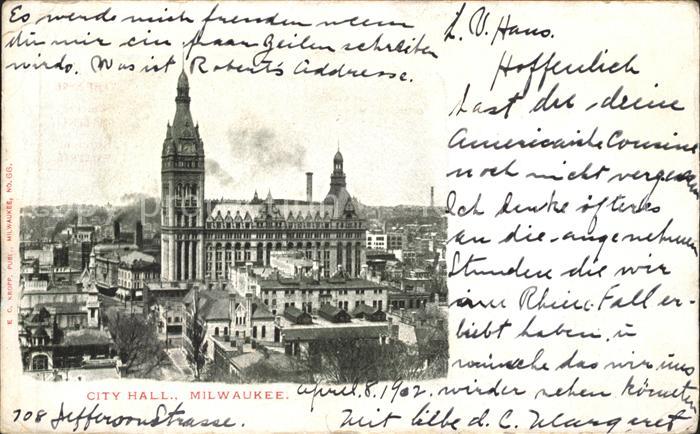 Es werde mich freuden wenn
du mir ein paar Zeilen schreiben
wirds. Was ist Robert's Addresse.
L. V. Hans.
Hoffenlich
hast du deine
Americanische Cousine
noch nicht vergessen
Ich denke öfteres
an die angenehmen
Stunden die wir
am Rhein-Fall er-
lebt haben, u
wünsche das wir uns
wieder sehen könnten
Mit liebe d. C. Margaret
april. 8. 1902.
708 Jefferson Strasse.
CITY HALL., MILWAUKEE.
E. C. KROPP, PUBL., MILWAUKEE, NO. 68.